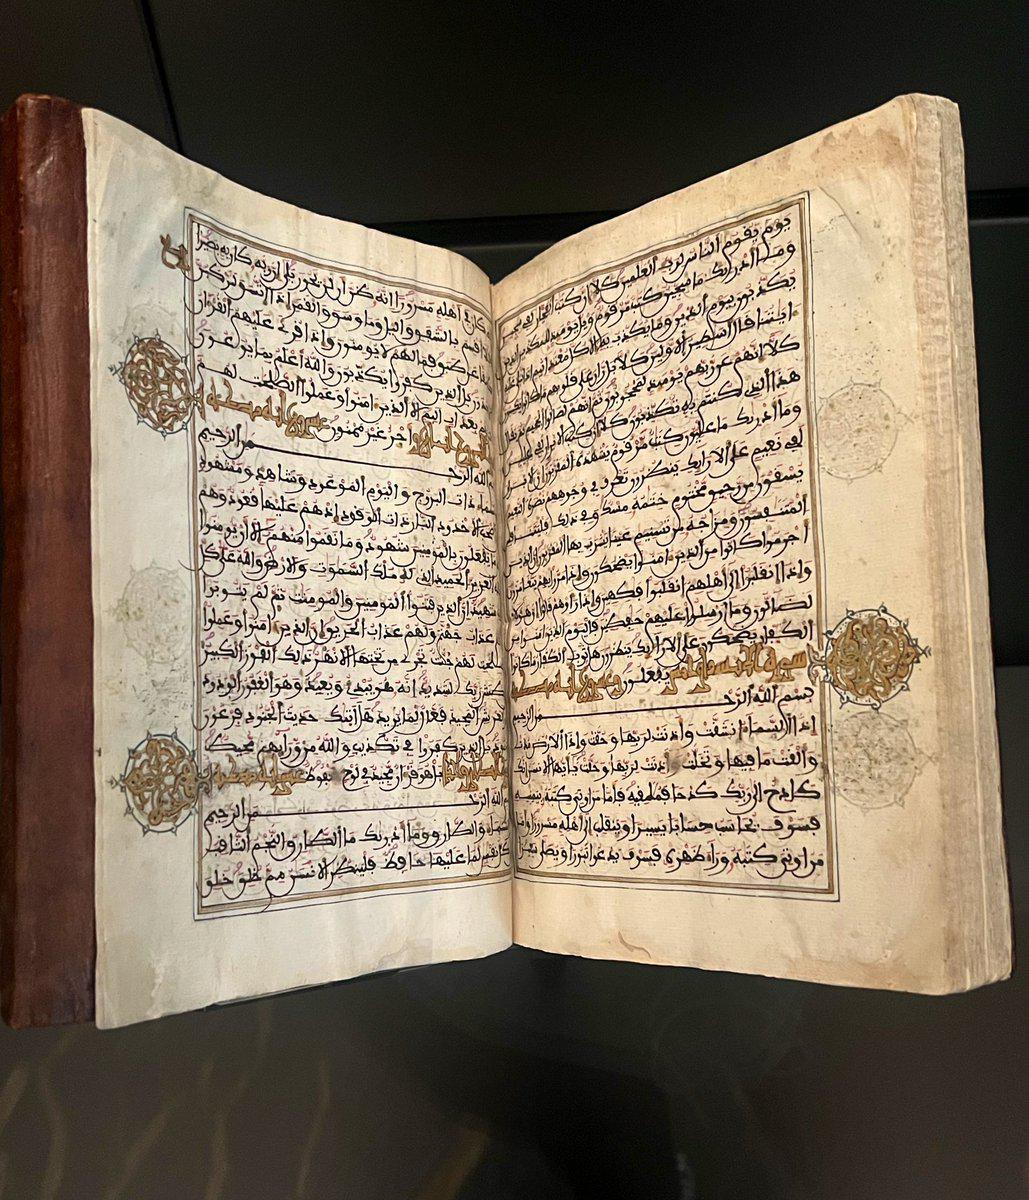 يوم يقوم الناس لرب العلمين كلا ان كتب الفجار لفي سجين
وما ادريك ما سجين كتب مرقوم ويل يومئذ للمكذبين الذين
يكذبون بيوم الدين وما يكذب به الا كل معتد اثيم اذا تتلى عليه
ءايتنا قال اسطير الاولين كلا بل ران على قلوبهم ما كانوا يكسبون
كلا انهم عن ربهم يومئذ لمحجوبون ثم انهم لصالوا الجحيم ثم يقال
هذا الذي كنتم به تكذبون كلا ان كتب الابرار لفي عليين
وما ادريك ما عليون كتب مرقوم يشهده المقربون ان الابرار
لفي نعيم على الارايك ينظرون تعرف في وجوههم نضرة النعيم
يسقون من رحيق مختوم ختمه مسك وفي ذلك فليتنافس
المتنفسون ومزاجه من تسنيم عينا يشرب بها المقربون ان الذين
اجرموا كانوا من الذين ءامنوا يضحكون واذا مروا بهم يتغامزون
واذا انقلبوا الى اهلهم انقلبوا فكهين واذا راوهم قالوا ان هؤلاء
لضالون وما ارسلوا عليهم حفظين فاليوم الذين ءامنوا من
الكفار يضحكون على الارايك ينظرون هل ثوب الكفار ما كانوا
يفعلون سورة الانشقاق وعشرون اية مكية
بسم الله الرحمن الرحيم
اذا السماء انشقت واذنت لربها وحقت واذا الارض مدت
والقت ما فيها وتخلت واذنت لربها وحقت يايها الانسن انك
كادح الى ربك كدحا فملقيه فاما من اوتي كتبه بيمينه
فسوف يحاسب حسابا يسيرا وينقلب الى اهله مسرورا واما
من اوتي كتبه وراء ظهره فسوف يدعوا ثبورا ويصلى سعيرا
انه كان في اهله مسرورا انه ظن ان لن يحور بلى ان ربه كان به بصيرا
فلا اقسم بالشفق واليل وما وسق والقمر اذا اتسق لتركبن
طبقا عن طبق فما لهم لا يومنون واذا قرئ عليهم القرءان
لا يسجدون بل الذين كفروا يكذبون والله اعلم بما يوعون
فبشرهم بعذاب اليم الا الذين ءامنوا وعملوا الصلحت لهم
اجر غير ممنون سورة البروج عشرون اية مكية
بسم الله الرحمن الرحيم
والسماء ذات البروج واليوم الموعود وشاهد ومشهود
قتل اصحب الاخدود النار ذات الوقود اذ هم عليها قعود وهم
على ما يفعلون بالمومنين شهود وما نقموا منهم الا ان يومنوا
بالله العزيز الحميد الذي له ملك السموت والارض والله على كل
شيء شهيد ان الذين فتنوا المومنين والمومنت ثم لم يتوبوا
فلهم عذاب جهنم ولهم عذاب الحريق ان الذين ءامنوا وعملوا
الصلحت لهم جنت تجري من تحتها الانهر ذلك الفوز الكبير
ان بطش ربك لشديد انه هو يبدئ ويعيد وهو الغفور الودود
ذو العرش المجيد فعال لما يريد هل اتيك حديث الجنود فرعون
وثمود بل الذين كفروا في تكذيب والله من ورائهم محيط
بل هو قرءان مجيد في لوح محفوظ سورة الطارق اية مكية
بسم الله الرحمن الرحيم
والسماء والطارق وما ادريك ما الطارق النجم الثاقب
ان كل نفس لما عليها حافظ فلينظر الانسن مم خلق خلق